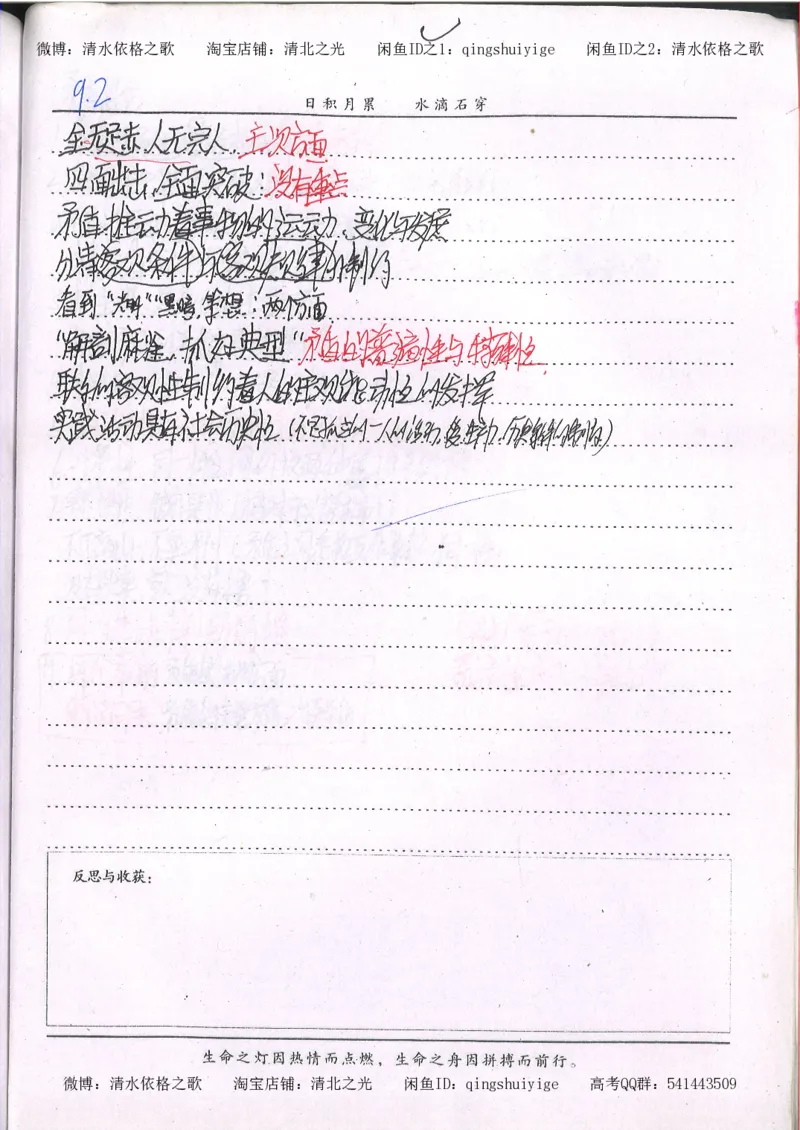 微博：清水依格之歌 淘宝店铺：清北之光 闲鱼ID之1：qingshuiyige 闲鱼ID之2：清水依格之歌
9.2
日积月累 水滴石穿
金无足赤人无完人 主次方面
四面出击，全面突破：没有重点
矛盾推动着事物的运动、变化与发展
客观条件与客观规律的制约
看到“光明”“黑暗”：两个方面
“解剖麻雀，抓好典型”矛盾的普遍性与特殊性
联系的客观性制约着人的主观能动性的发挥
实践活动具有社会历史性
反思与收获：
生命之灯因热情而点燃，生命之舟因拼搏而前行。
微博：清水依格之歌 淘宝店铺：清北之光 闲鱼ID：qingshuiyige 高考QQ群：541443509